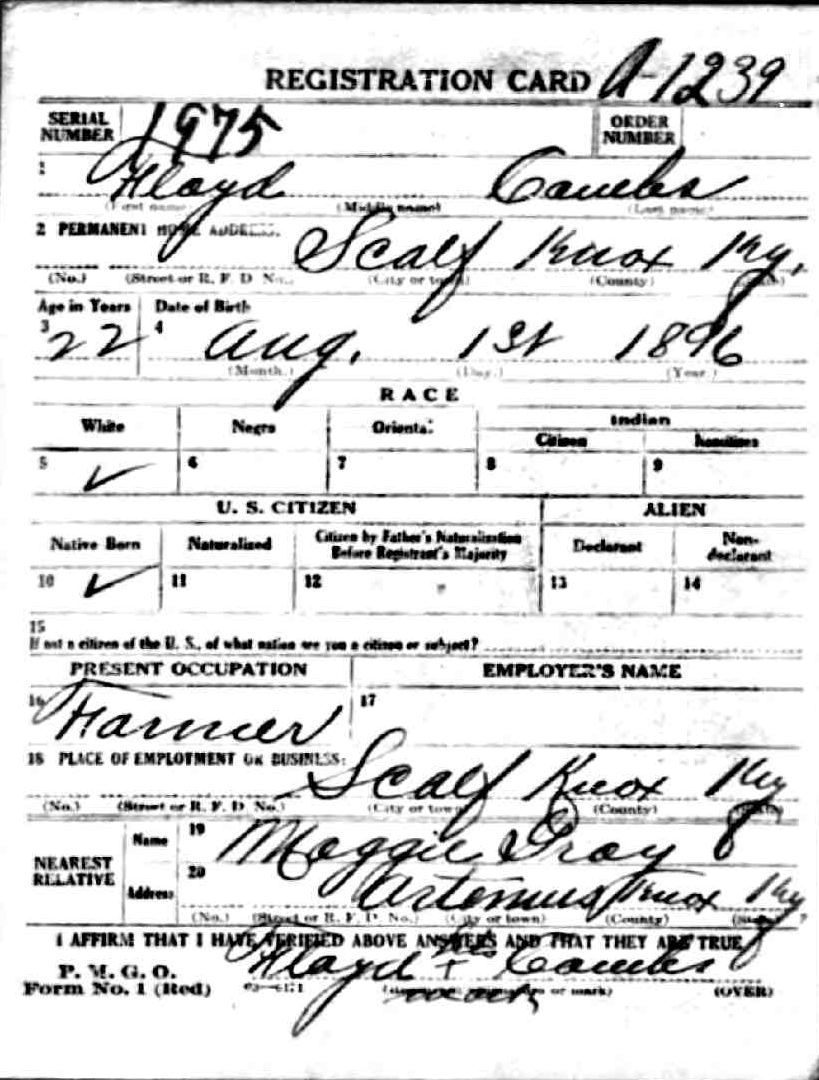 REGISTRATION CARD A-1239
SERIAL NUMBER 1975 ORDER NUMBER
1 Floyd Combs
(First name) (Middle name) (Last name)
2 PERMANENT HOME ADDRESS:
Scalf Knox Ky.
(No.) (Street or R. F. D. No.) (City or town) (County) (State)
Age in Years Date of Birth
3 22 4 Aug. 1st 1896
(Month.) (Day.) (Year.)
RACE
White Negro Oriental Indian
Citizen Noncitizen
5 ✓ 6 7 8 9
U. S. CITIZEN ALIEN
Native Born Naturalized Citizen by Father's Naturalization Before Registrant's Majority Declarant Non-declarant
10 ✓ 11 12 13 14
15
If not a citizen of the U. S., of what nation are you a citizen or subject?
PRESENT OCCUPATION EMPLOYER'S NAME
16 Farmer 17
18 PLACE OF EMPLOYMENT OR BUSINESS:
Scalf Knox Ky
(No.) (Street or R. F. D. No.) (City or town) (County) (State)
NEAREST RELATIVE Name 19 Maggie Gray
Address 20 Artemus Knox Ky
(No.) (Street or R. F. D. No.) (City or town) (County) (State)
I AFFIRM THAT I HAVE VERIFIED ABOVE ANSWERS AND THAT THEY ARE TRUE
P. M. G. O.
Form No. 1 (Red)
his
Floyd + Combs
mark
(OVER)